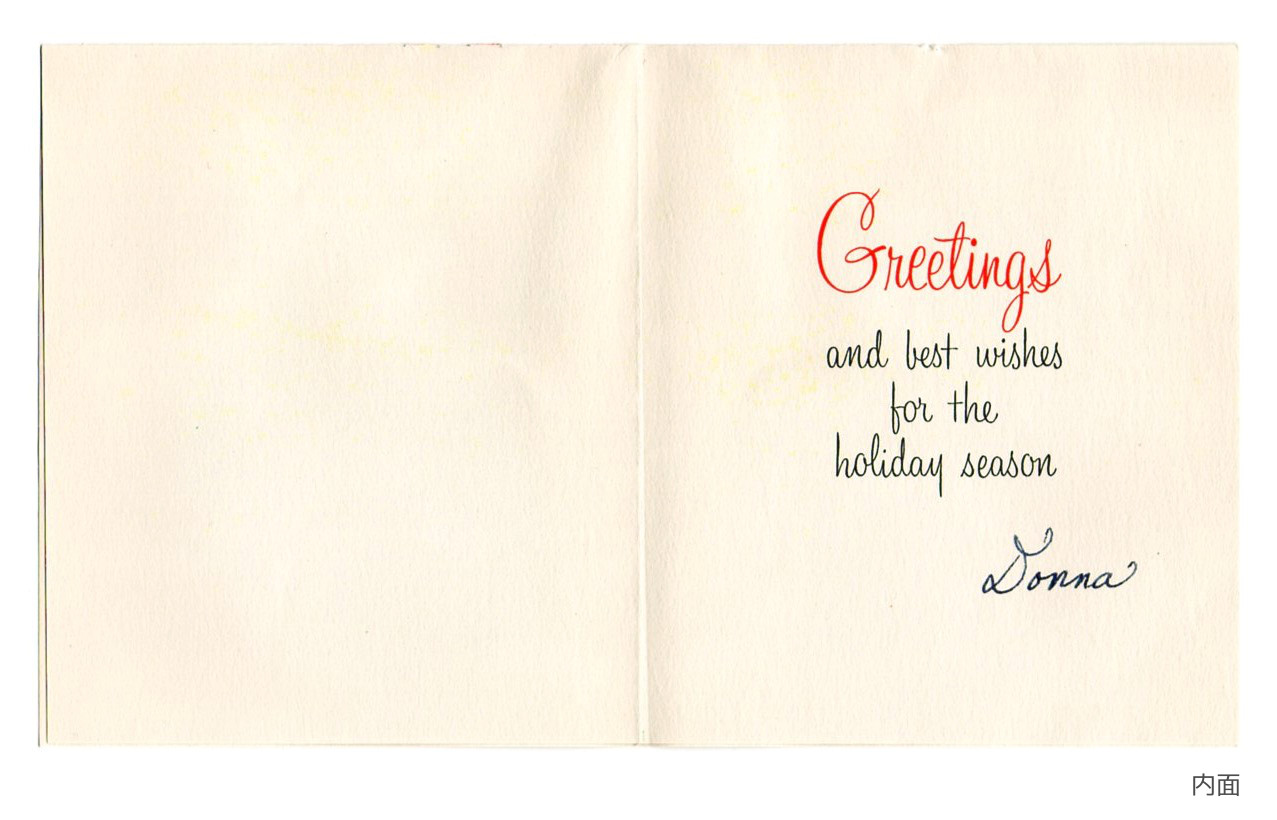 Greetings
and best wishes
for the
holiday season
Donna
内面